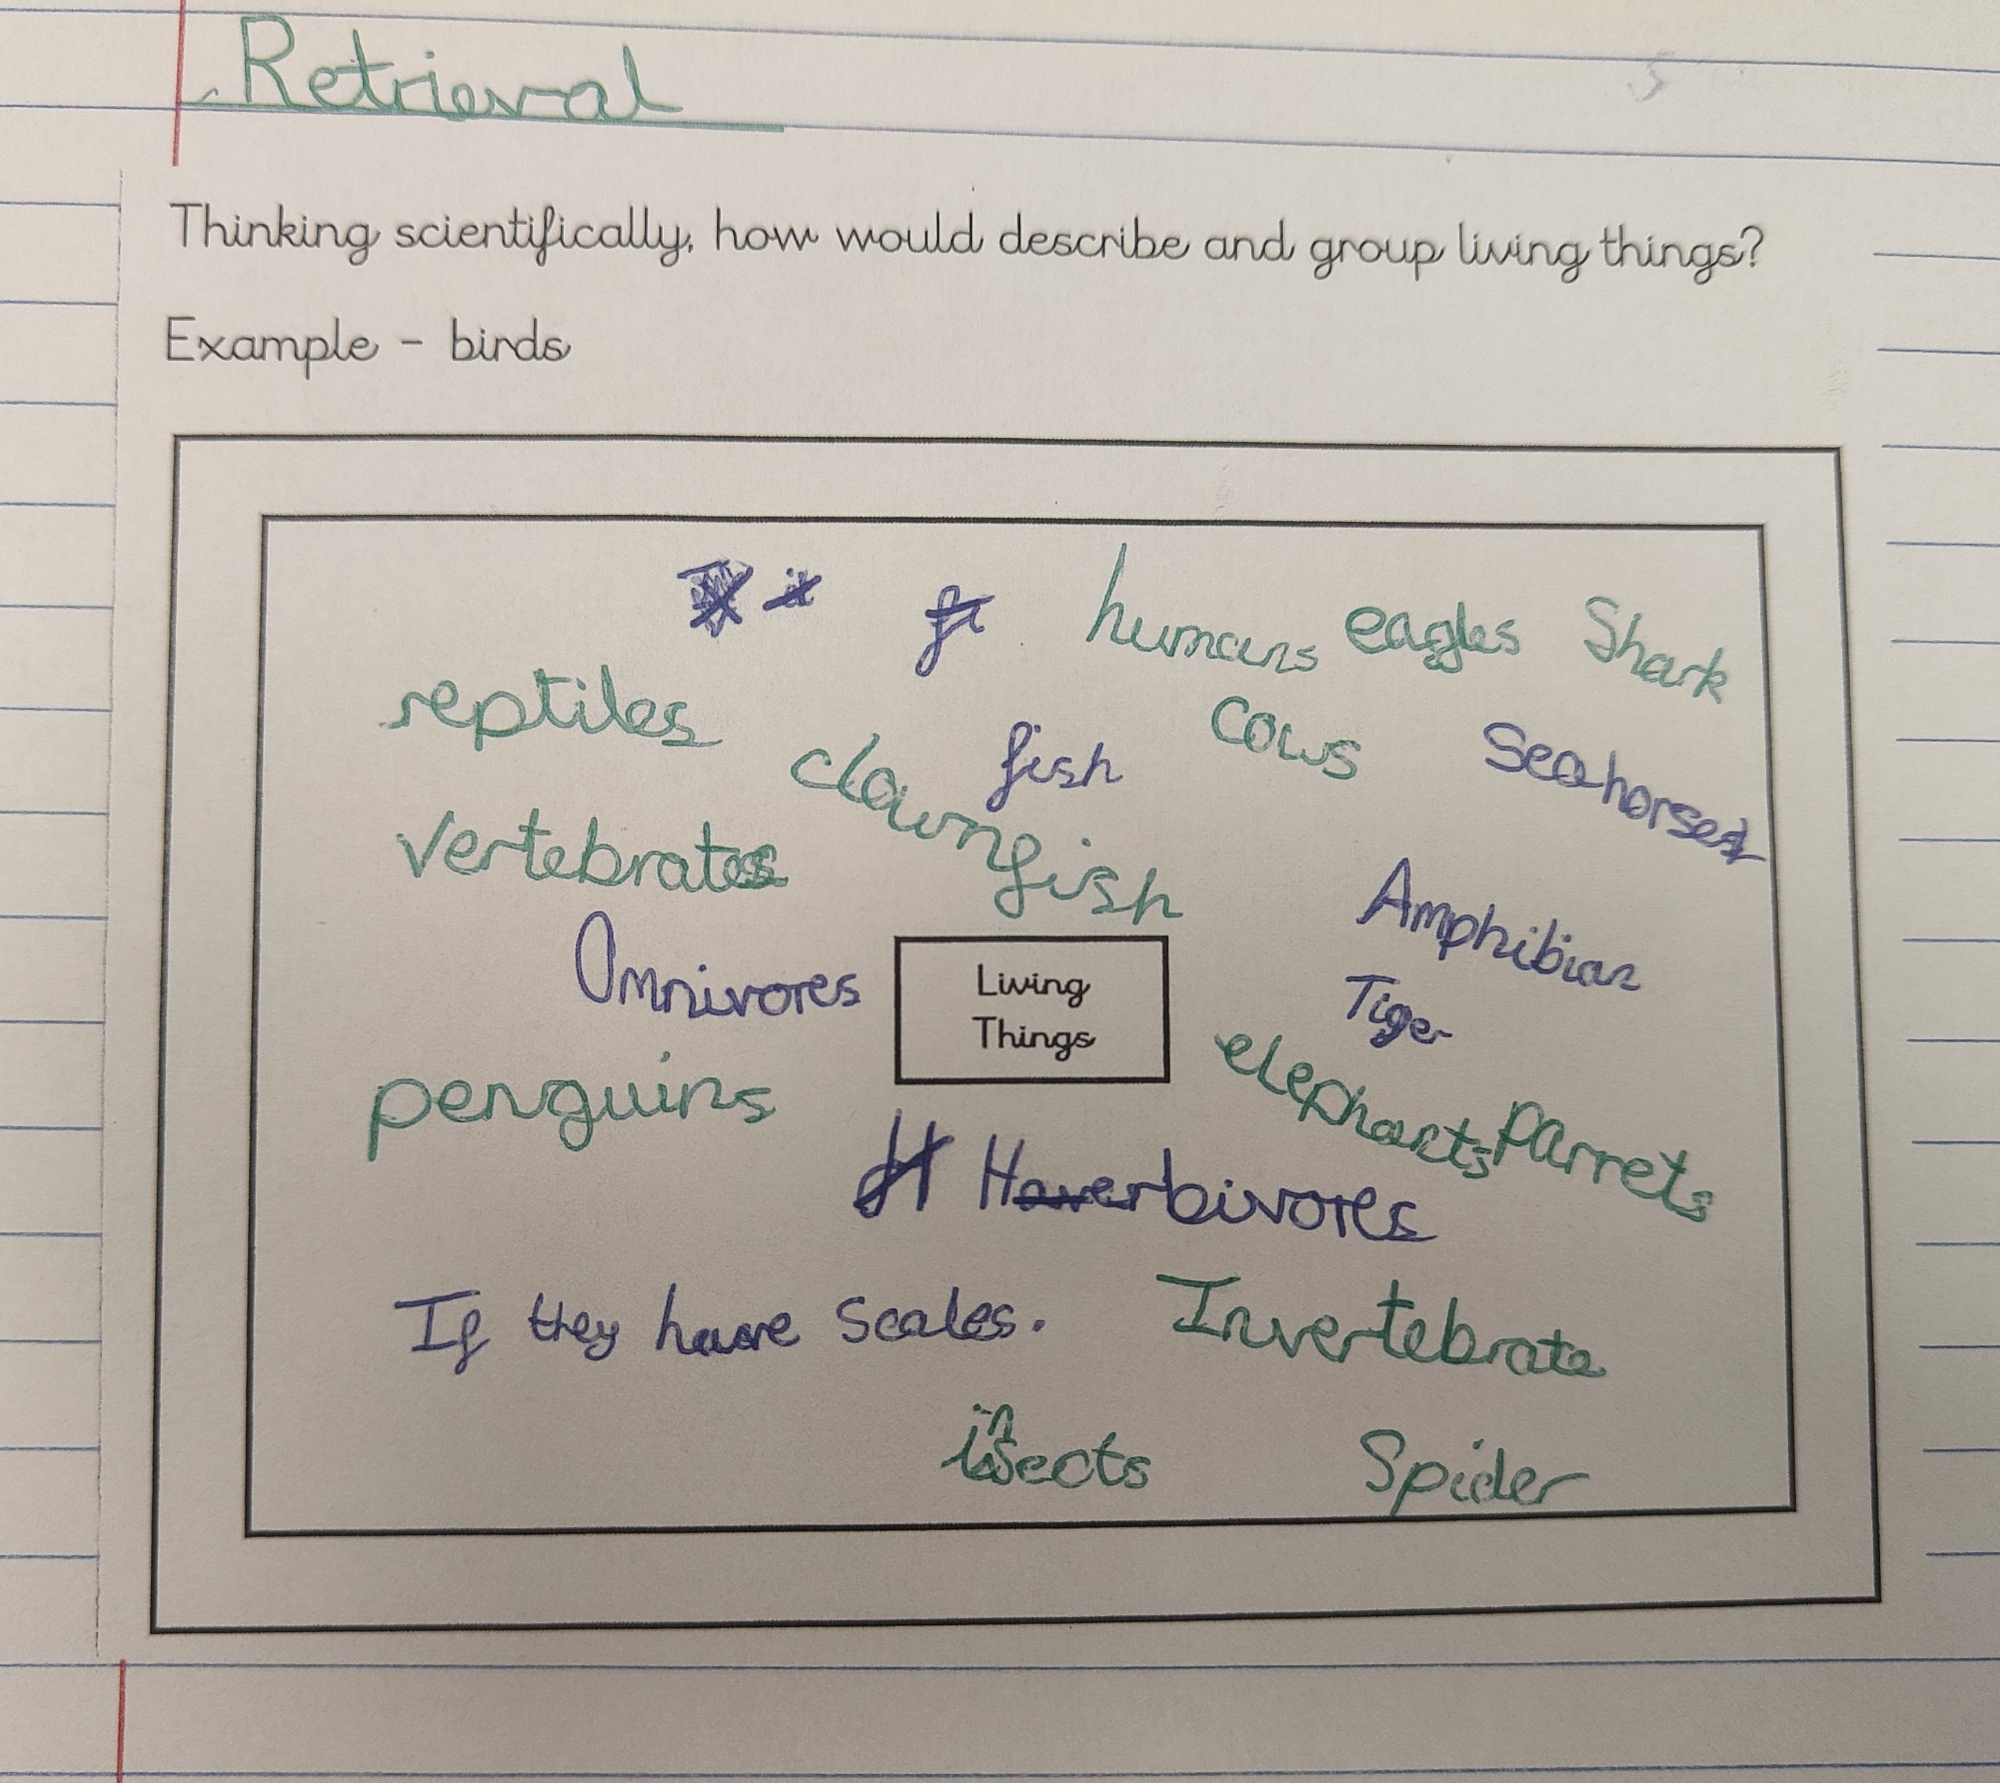 Retrieval
Thinking scientifically, how would describe and group living things?
Example - birds
humans eagles Shark
reptiles
clownfish
fish
cows
Seahorses
vertebrates
Amphibian
Omnivores
Living
Things
Tiger
elephants
Parrets
penguins
Herbivores
If they have scales.
Invertebrate
insects
Spider